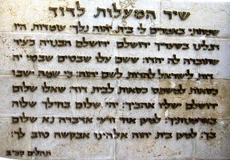 שיר המעלות לדוד
שמחתי באמרים לי בית יהוה נלך: עמדות היו
רגלינו בשעריך ירושלם: ירושלם הבנויה כעיר
שחברה לה יחדו: ששם עלו שבטים שבטי יה
עדות לישראל להדות לשם יהוה: כי שמה ישבו
כסאות למשפט כסאות לבית דויד: שאלו שלום
ירושלם ישליו אהביך: יהי שלום בחילך שלוה
בארמנותיך: למען אחי ורעי אדברה נא שלום
בך: למען בית יהוה אלהינו אבקשה טוב לך:
תהלים קכ"ב